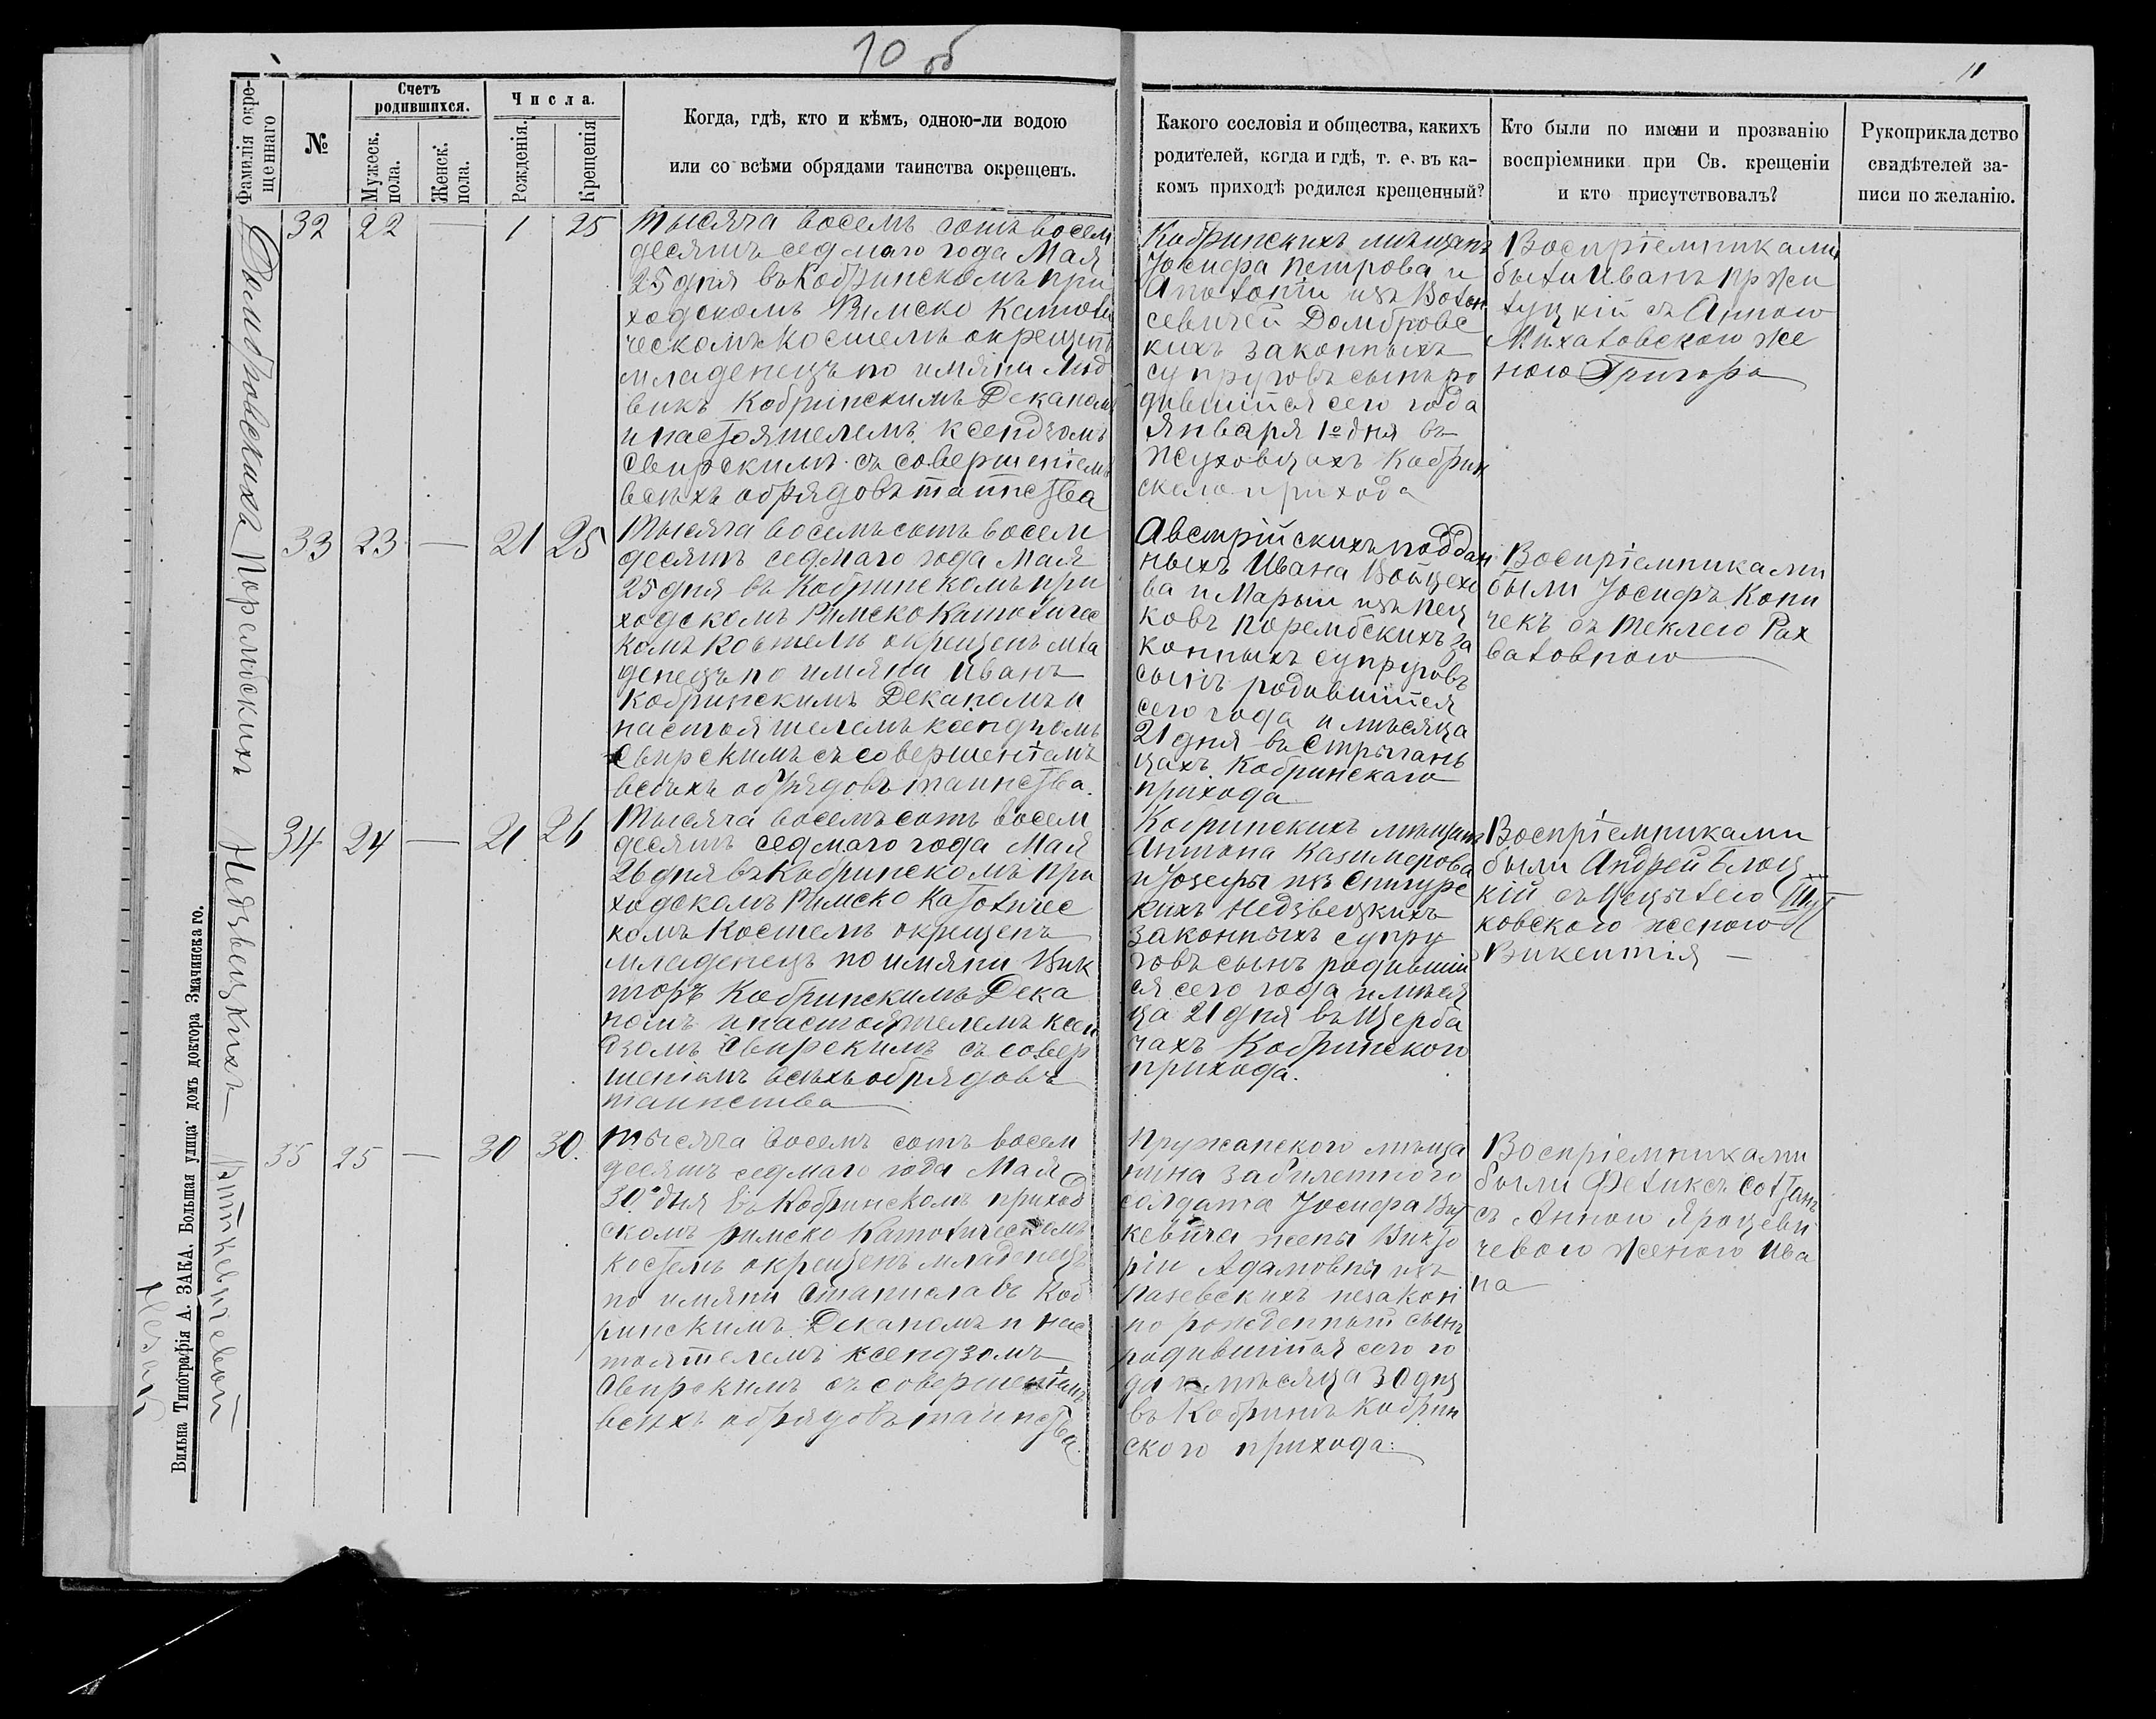 10 об
11
Фамилія окре-
щеннаго
№
Счетъ
родившихся.
Мужеск.
пола.
Женск.
пола.
Числа.
Рожденія.
Крещенія
Когда, гдѣ, кто и кѣмъ, одною-ли водою
или со всѣми обрядами таинства окрещенъ.
Какого сословія и общества, какихъ
родителей, когда и гдѣ, т. е. въ ка-
комъ приходѣ родился крещенный?
Кто были по имени и прозванію
воспріемники при Св. крещеніи
и кто присутствовалъ?
Рукоприкладство
свидѣтелей за-
писи по желанію.
Домбровскихъ
32 22 — 1 25
Тысяча восемъ сотъ восем
десятъ седмаго года Мая
25 дня въ Кобринскомъ при
ходскомъ Римско Католи
ческомъ Костелѣ окрещенъ
младенецъ по имяни Люд
викъ Кобринскимъ Деканомъ
и настоятелемъ ксендзомъ
Свирскимъ съ совершеніемъ
всѣхъ обрядовъ таинства
Кобринскихъ мѣщанъ
Іосифа Петрова и
Аполоніи изъ Волон
севичей Домбровс
кихъ законныхъ
супруговъ сынъ ро
дившійся сего года
Января 1º дня въ
Жуховцахъ Кобрин
скаго прихода
Воспріемниками
были Иванъ Пржи
луцкій съ Анною
Михаловскою же
ною Григора
Порембскихъ
33 23 — 21 25
Тысяча восемъ сотъ восем
десятъ седмаго года Мая
25 дня въ Кобринскомъ при
ходскомъ Римско Католичес
комъ Костелѣ окрещенъ мла
денецъ по имяни Иванъ
Кобринскимъ Деканомъ и
настоятелемъ ксендзомъ
Свирскимъ съ совершеніемъ
всѣхъ обрядовъ таинства.
Австрійскихъ поддан
ныхъ Ивана Войцехо
ва и Марыи изъ Пец
ковъ Порембскихъ за
конныхъ супруговъ
сынъ родившійся
сего года и мѣсяца
21 дня въ Стрыгань
цахъ Кобринскаго
прихода
Воспріемниками
были Іосифъ Копи
чекъ съ Теклею Рах
валовною
Недзвецкихъ
34 24 — 21 26
Тысяча восемъ сотъ восем
десятъ седмаго года Мая
26 дня въ Кобринскомъ при
ходскомъ Римско Католичес
комъ Костелѣ окрещенъ
младенецъ по имяни Вик
торъ Кобринскимъ Дека
номъ и настоятелемъ ксен
дзомъ Свирскимъ съ совер
шеніемъ всѣхъ обрядовъ
таинства
Кобринскихъ мѣщанъ
Антона Казимерова
и Іозефы изъ Снигурс
кихъ Недзвецкихъ
законныхъ супру
говъ сынъ родившій
ся сего года и мѣся
ца 21 дня въ Щерба
чахъ Кобринского
прихода.
Воспріемниками
были Андрей Блоц
кій съ Цецылею Шут
ковского женою
Викентія —
Виткевичевой
35 25 — 30 30.
Тысяча восемъ сотъ восем
десятъ седмаго года Мая
30 дня въ Кобринскомъ приход
скомъ римско Католическомъ
костелѣ окрещенъ младенецъ
по имяни Станиславъ Коб
ринскимъ Деканомъ и нас
тоятелемъ ксендзомъ
Свирскимъ съ совершеніемъ
всѣхъ обрядовъ таинства.
Пружанского мѣща
нина забилетного
солдата Іосифа Вит
кевича жены Викто
ріи Адамовны изъ
Пазевскихъ незакон
но рожденный сынъ
родившійся сего го
да и мѣсяца 30 дня
въ Кобринѣ Кобрин
ского прихода.
Воспріемниками
были Феликсъ Солтанъ
съ Анною Яроцеви
чевою женою Ива
на
Вильна Типографія А. ЗАКА. Большая улица домъ доктора Змачинскаго.